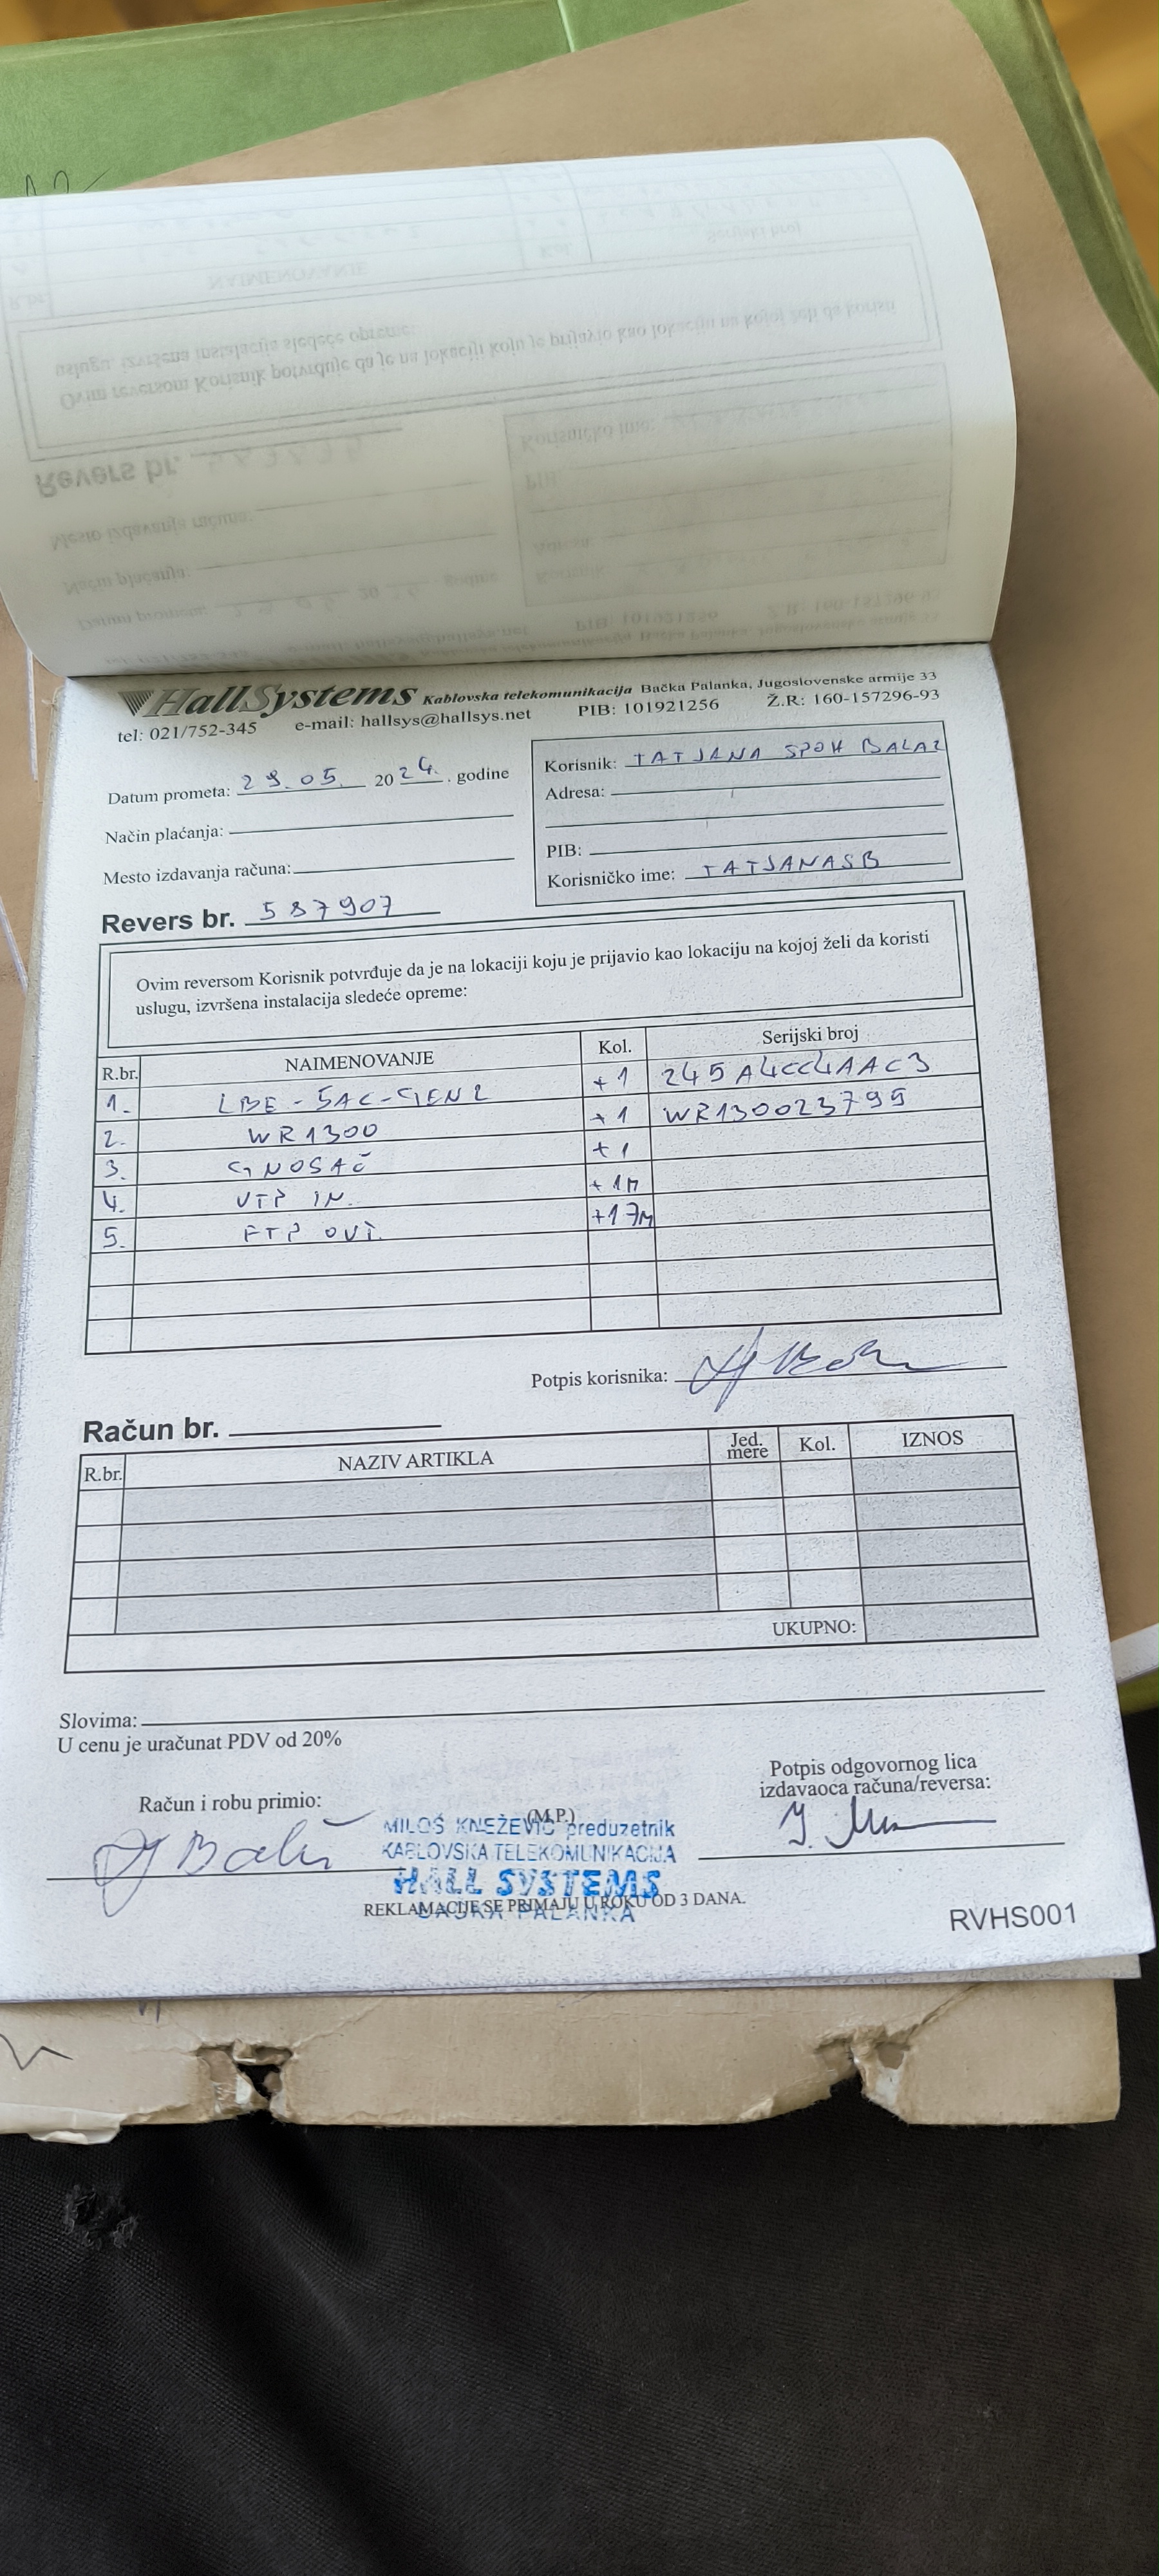 HallSystems Kablovska telekomunikacija Bačka Palanka, Jugoslovenske armije 33
tel: 021/752-345 e-mail: hallsys@hallsys.net PIB: 101921256 Ž.R: 160-157296-93
Datum prometa: 29.05. 2024. godine
Način plaćanja:
Mesto izdavanja računa:
Korisnik: TATJANA SPOH BALAZ
Adresa:
PIB:
Korisničko ime: TATJANASB
Revers br. 587907
Ovim reversom Korisnik potvrđuje da je na lokaciji koju je prijavio kao lokaciju na kojoj želi da koristi
uslugu, izvršena instalacija sledeće opreme:
R.br. NAIMENOVANJE Kol. Serijski broj
1. LBE-5AC-GEN2 +1 245A4CC4AAC3
2. WR1300 +1 WR130023795
3. G NOSAČ +1
4. UTP IN. +1m
5. FTP OUT. +17m
Potpis korisnika:
Račun br.
R.br. NAZIV ARTIKLA Jed. mere Kol. IZNOS
UKUPNO:
Slovima:
U cenu je uračunat PDV od 20%
Račun i robu primio:
(M.P.)
Potpis odgovornog lica
izdavaoca računa/reversa:
MILOŠ KNEŽEVIĆ preduzetnik
KABLOVSKA TELEKOMUNIKACIJA
HALL SYSTEMS
BAČKA PALANKA
REKLAMACIJE SE PRIMAJU U ROKU OD 3 DANA.
RVHS001